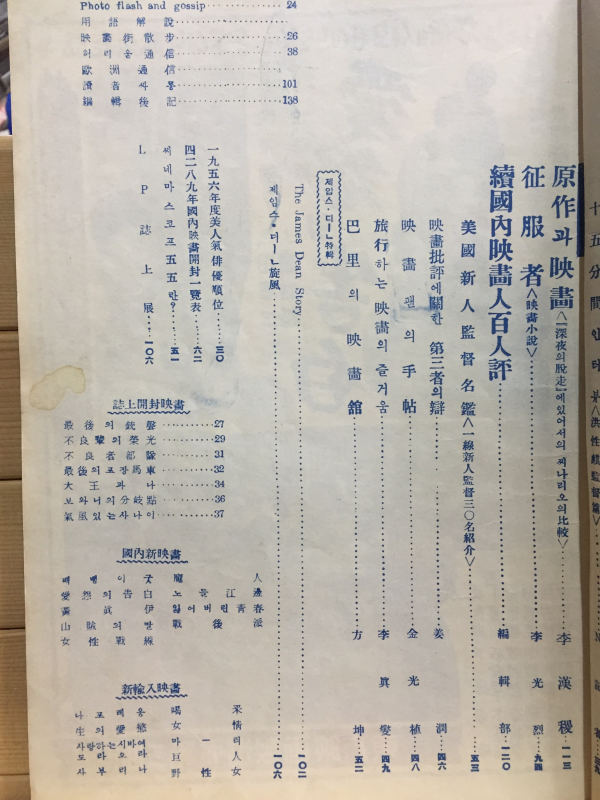 Photo flash and gossip 24
用語解說
映畵街散步 26
허리웃通信 38
歐洲通信
讀者싸롱 101
編輯後記 138
十五分間인터뷰〈洪性麒監督篇〉
原作과 映畵〈「深夜의 脫走」에 있어서의 씨나리오의 比較〉 李漢稷 一一三
征服者〈映畵小說〉 李光烈 九四
續國內映畵人百人評 編輯部 一二〇
美國新人監督名鑑〈一線新人監督三〇名紹介〉 五三
映畵批評에 關한 第三者의 辯 姜潤 四六
映畵팬의 手帖 金光植 四八
旅行하는 映畵의 즐거움 李眞燮 四九
巴里의 映畵館 方坤 五二
제임스·디-ㄴ特輯
The James Dean Story 一〇二
제임스·디-ㄴ旋風 一〇六
一九五六年度美人氣俳優順位 三〇
四二八九年國內映畵開封一覽表 六二
씨네마스코프五五란? 五一
LP誌上展 一〇六
誌上開封映畵
最後의 銃聲 27
不良輩의 榮光 29
不良者部隊 31
最後의 포장馬車 32
大王과 나 34
보와니의 分岐點 36
氣風있는 사나이 37
國內新映畵
배뱅이굿 魔人
愛怨의 告白 노들江邊
黃眞伊 잃어버린 靑春
山賊의 딸 戰後派
女性戰線
新輸入映畵